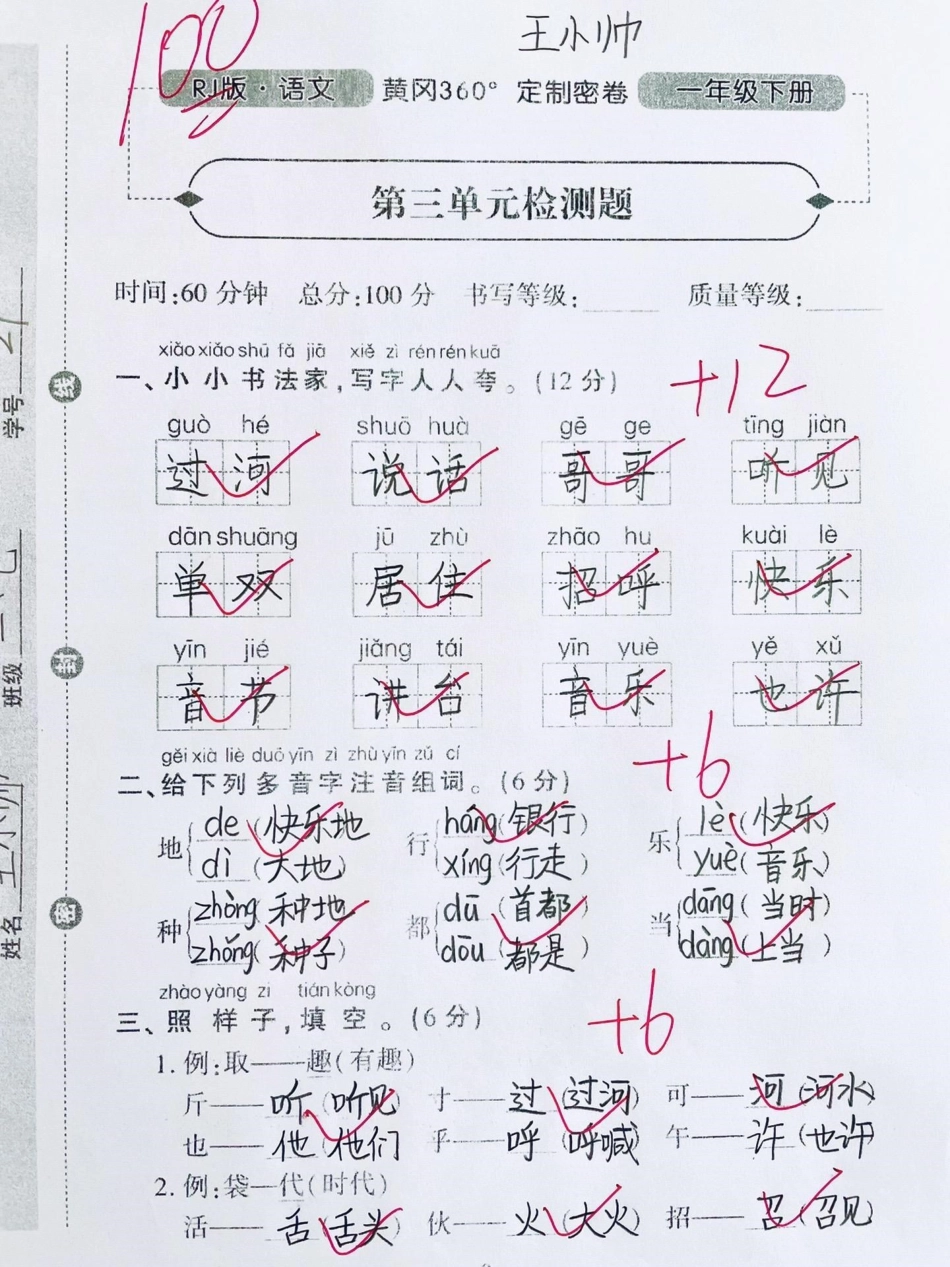 王小帅
100
RJ版·语文 黄冈360° 定制密卷 一年级下册
第三单元检测题
时间:60分钟 总分:100分 书写等级: 质量等级:
xiǎo xiǎo shū fǎ jiā xiě zì rén rén kuā
一、小小书法家,写字人人夸。(12分) +12
guò hé shuō huà gē ge tīng jiàn
过河 说话 哥哥 听见
dān shuāng jū zhù zhāo hu kuài lè
单双 居住 招呼 快乐
yīn jié jiǎng tái yīn yuè yě xǔ
音节 讲台 音乐 也许
gěi xià liè duō yīn zì zhù yīn zǔ cí
二、给下列多音字注音组词。(6分) +6
地 de (快乐地) 行 háng (银行) 乐 lè (快乐)
dì (大地) xíng (行走) yuè (音乐)
种 zhòng (种地) 都 dū (首都) 当 dāng (当时)
zhǒng (种子) dōu (都是) dàng (上当)
zhào yàng zi tián kòng
三、照样子,填空。(6分) +6
1.例:取——趣(有趣)
斤——听(听见) 寸——过(过河) 可——河(河水)
也——他(他们) 乎——呼(呼喊) 午——许(也许)
2.例:袋—代(时代)
活——舌(舌头) 伙——火(大火) 招——召(召见)
学号 21
班级
姓名 王小帅
线
封
密